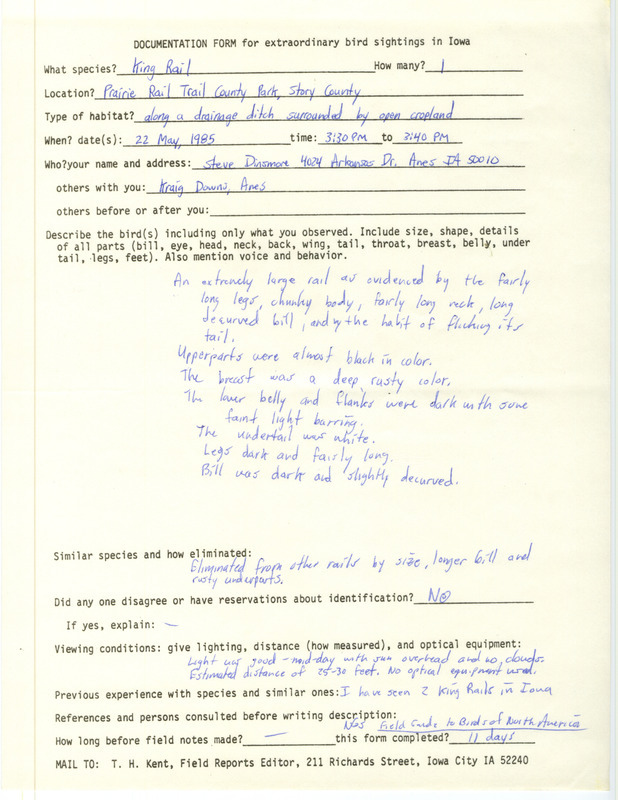 DOCUMENTATION FORM for extraordinary bird sightings in Iowa
What species? King Rail How many? 1
Location? Prairie Rail Trail County Park, Story County
Type of habitat? along a drainage ditch surrounded by open cropland
When? date(s): 22 May, 1985 time: 3:30 PM to 3:40 PM
Who?your name and address: Steve Dinsmore 4024 Arkansas Dr. Ames IA 50010
others with you: Kraig Downs, Ames
others before or after you:
Describe the bird(s) including only what you observed. Include size, shape, details
of all parts (bill, eye, head, neck, back, wing, tail, throat, breast, belly, under
tail, legs, feet). Also mention voice and behavior.
An extremely large rail as evidenced by the fairly
long legs, chunky body, fairly long neck, long
decurved bill, and by the habit of flicking its
tail.
Upperparts were almost black in color.
The breast was a deep, rusty color.
The lower belly and flanks were dark with some
faint light barring.
The undertail was white.
Legs dark and fairly long.
Bill was dark and slightly decurved.
Similar species and how eliminated:
Eliminated from other rails by size, longer bill and
rusty underparts.
Did any one disagree or have reservations about identification? No
If yes, explain: -
Viewing conditions: give lighting, distance (how measured), and optical equipment:
Light was good - mid-day with sun overhead and no clouds.
Estimated distance of 25-30 feet. No optical equipment used.
Previous experience with species and similar ones: I have seen 2 King Rails in Iowa
References and persons consulted before writing description:
NGS Field Guide to Birds of North America
How long before field notes made? - this form completed? 11 days
MAIL TO: T. H. Kent, Field Reports Editor, 211 Richards Street, Iowa City IA 52240